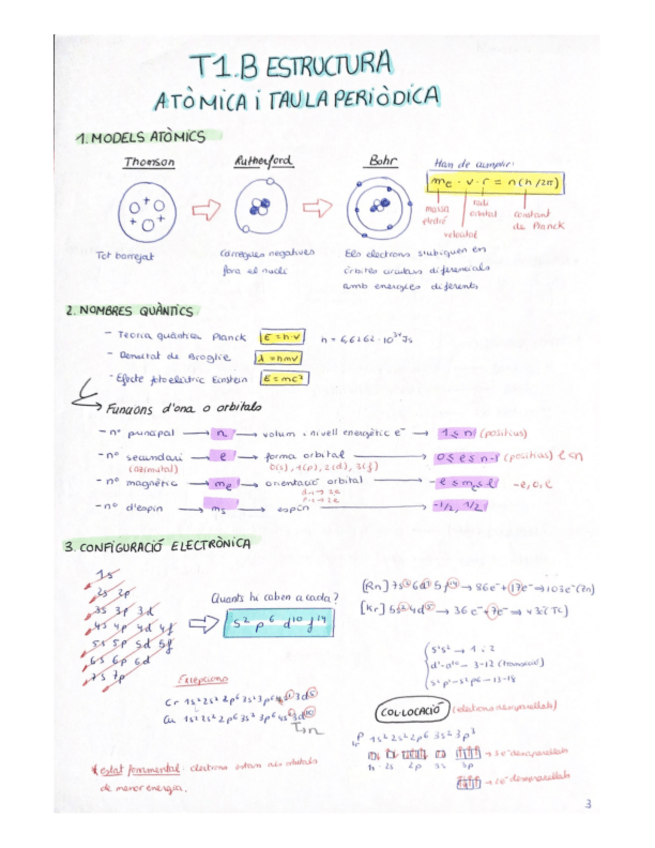 T1.B ESTRUCTURA
ATÒMICA i TAULA PERIÒDICA
1. MODELS ATÒMICS
Thomson
Rutherford
Bohr
Han de cumplir:
me · v · r = n(h/2π)
massa electró
velocitat
radi orbital
constant de Planck
Tot barrejat
Càrregues negatives
fora el nucli
Els electrons s'ubiquen en
òrbites circulars diferencials
amb energies diferents
2. NOMBRES QUÀNTICS
- Teoria quàntica Planck E = h·ν h = 6,6262·10³⁴ Js
- Dualitat de Broglie λ = h/mv
- Efecte fotoelèctric Einstein E = mc²
Funcions d'ona o orbitals
- nº principal → n → volum i nivell energètic e⁻ → 1 ≤ n (positius)
- nº secundari → l → forma orbital → 0 ≤ l ≤ n-1 (positius) l < n
(azimutal) 0(s), 1(p), 2(d), 3(f)
- nº magnètic → ml → orientació orbital → -l ≤ ml ≤ l -l, 0, l
- nº d'espin → ms → espín → -1/2, 1/2
3. CONFIGURACIÓ ELECTRÒNICA
1s
2s 2p
3s 3p 3d
4s 4p 4d 4f
5s 5p 5d 5f
6s 6p 6d
7s 7p
Quants hi caben a cada?
s² p⁶ d¹⁰ f¹⁴
[Kr] 5s² 4d⁵ → 36e⁻ + 7e⁻ → 43 (Tc)
s¹ s² → 1 i 2
d¹-d¹⁰ → 3-12 (transició)
s²p¹-s²p⁶ → 13-18
Excepcions
Cr 1s² 2s² 2p⁶ 3s² 3p⁶ 4s¹ 3d⁵
Cu 1s² 2s² 2p⁶ 3s² 3p⁶ 4s¹ 3d¹⁰
COL·LOCACIÓ (electrons desaparellats)
P 1s² 2s² 2p⁶ 3s² 3p³
→ 3e⁻ desaparellats
1s 2s 2p 3s 3p
→ 2e⁻ desaparellats
* estat fonamental: electrons estan als orbitals
de menor energia.
3